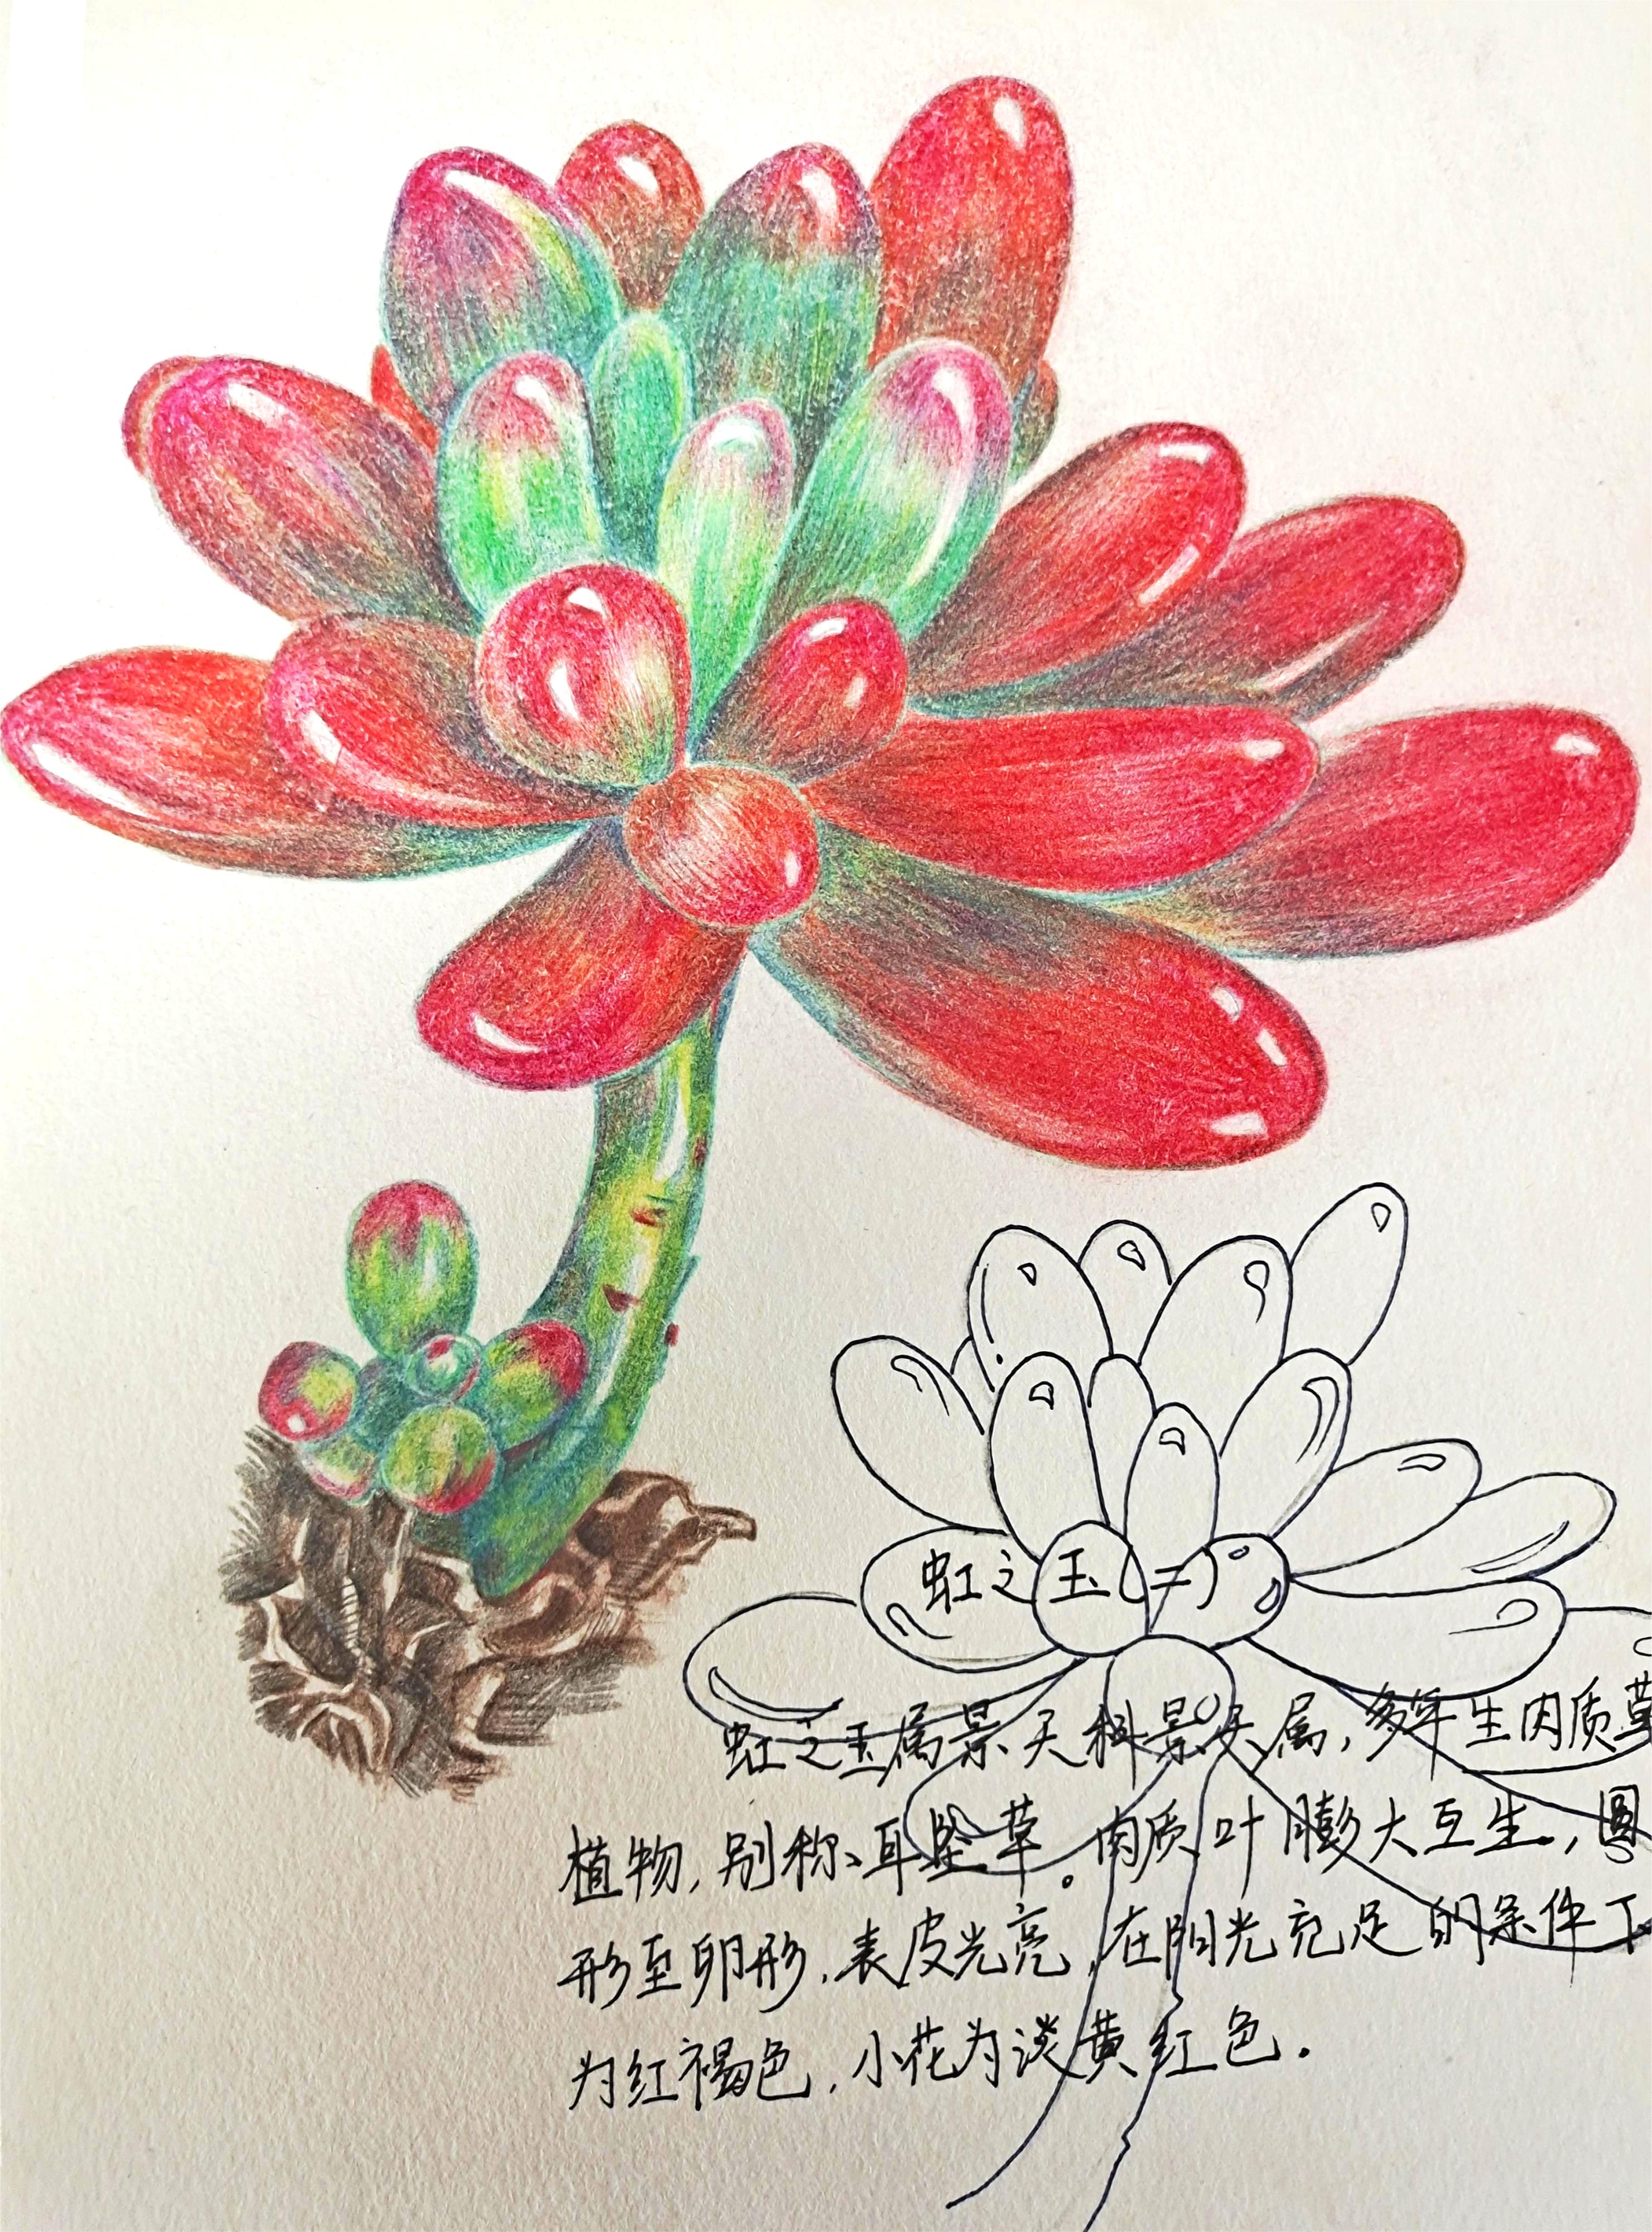 虹之玉(二)
虹之玉属景天科景天属，多年生肉质草
植物，别称、耳坠草。肉质叶膨大互生，圆
形至卵形，表皮光亮，在阳光充足的条件下
为红褐色，小花为淡黄红色.